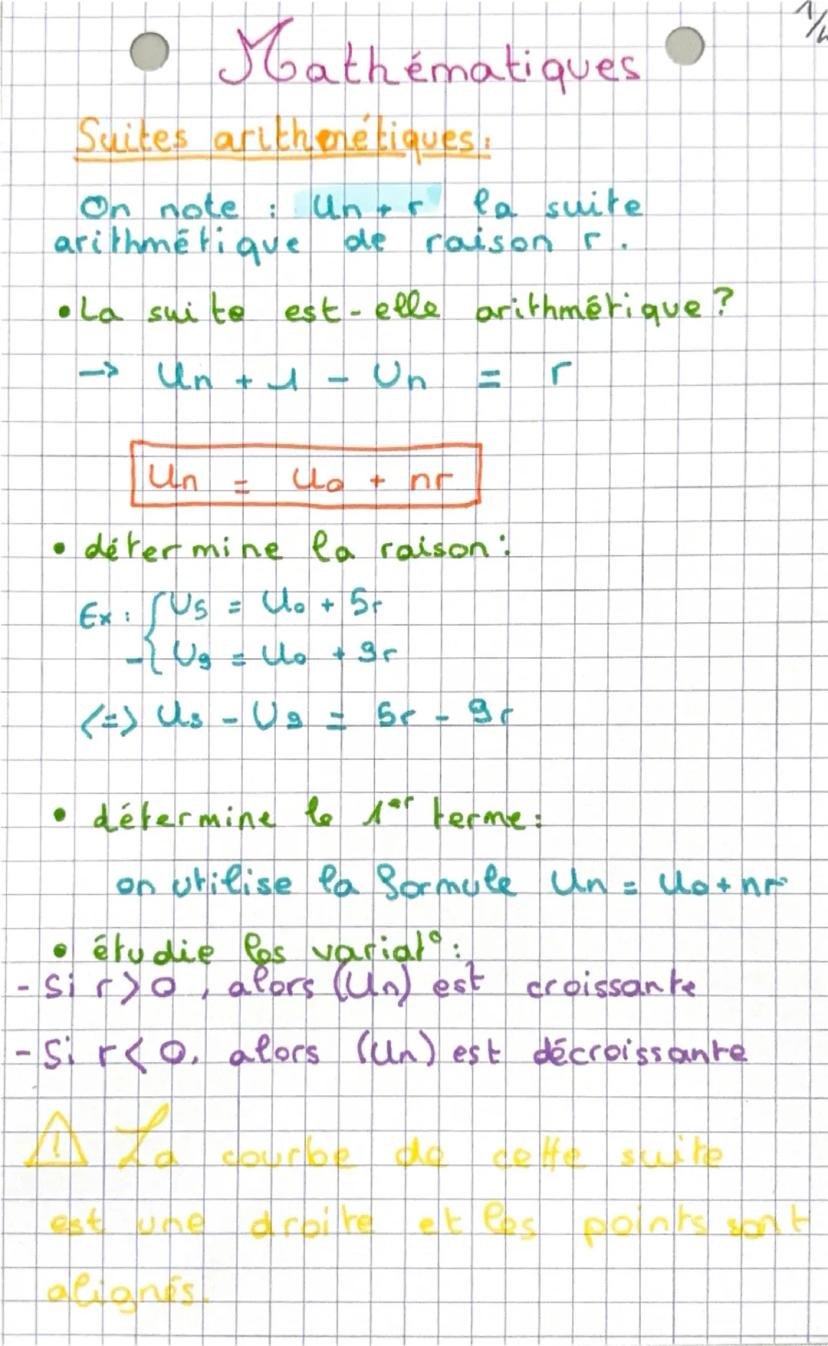 1/4
Mathématiques
Suites arithmétiques:
On note : Un + r la suite
arithmétique de raison r.
•La suite est-elle arithmétique?
→ Un + 1 - Un = r
Un = U0 + nr
• détermine la raison:
Ex: { U5 = U0 + 5r
-{ U9 = U0 + 9r
<=> U5 - U9 = 5r - 9r
• détermine le 1er terme:
on utilise la formule Un = U0 + nr
• étudie les variat°:
- Si r > 0, alors (Un) est croissante
- Si r < 0, alors (Un) est décroissante
⚠ La courbe de cette suite
est une droite et les points sont
alignés.